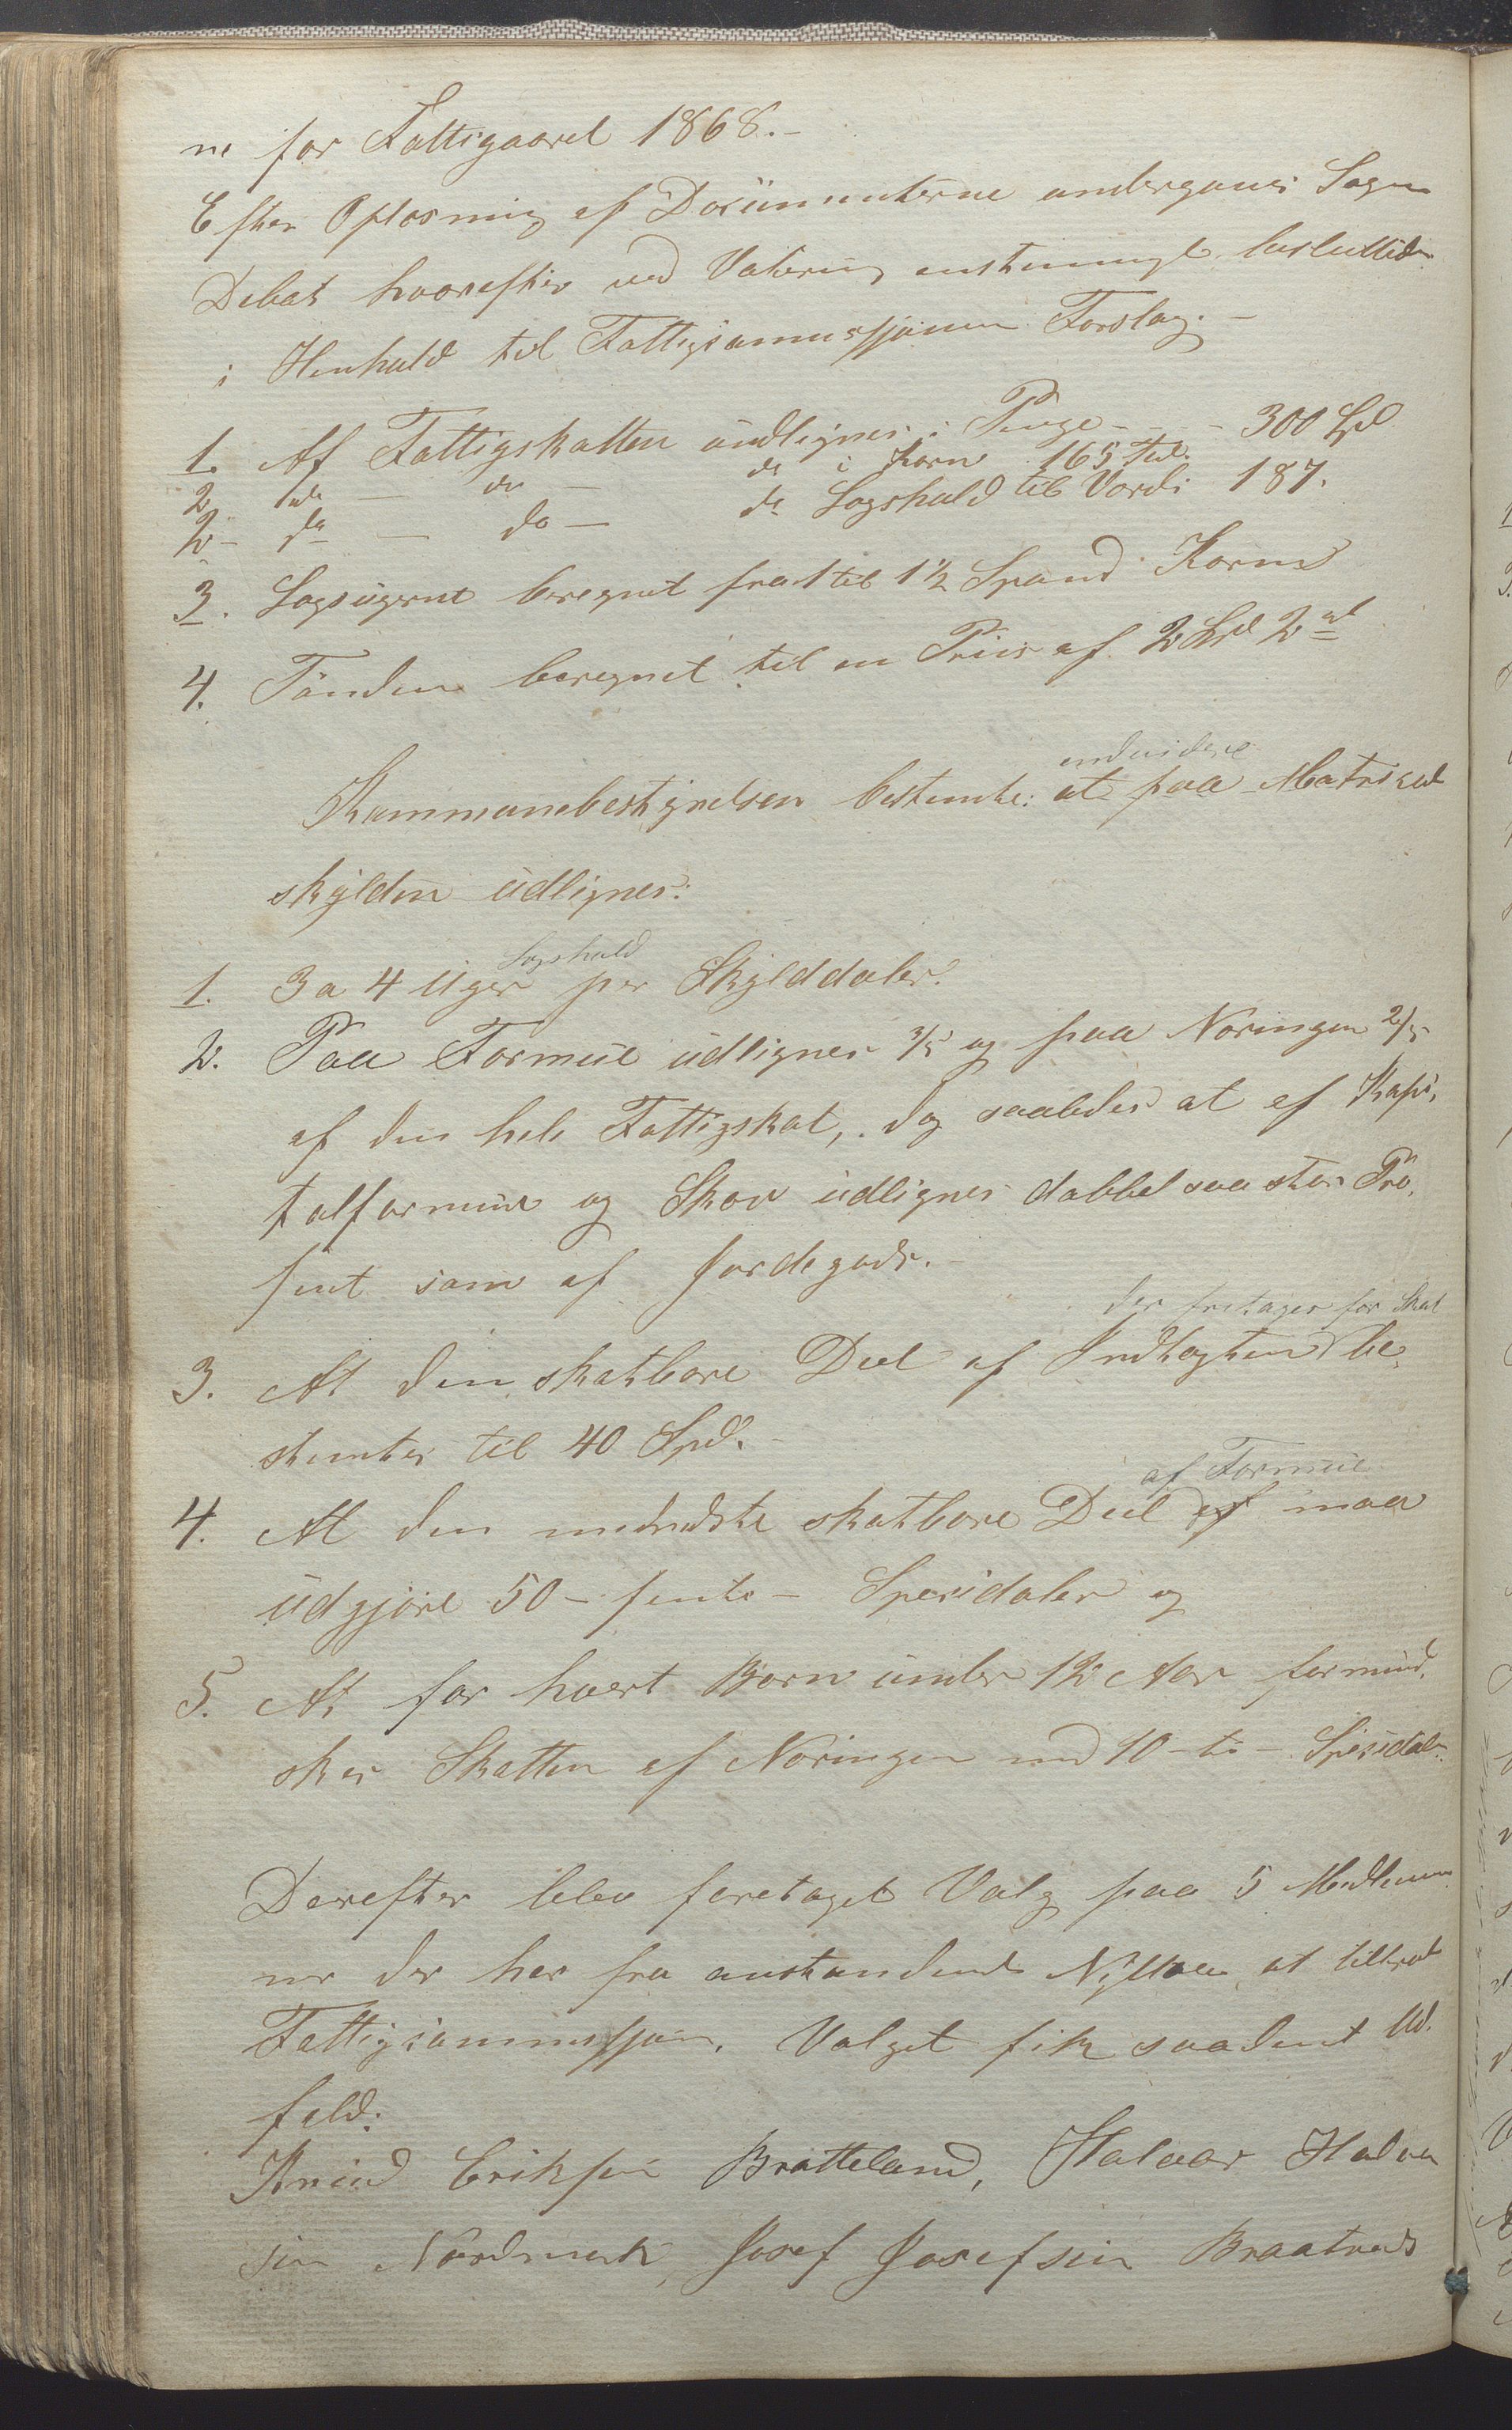 ne for Fattigaaret 1868.-
Efter Oplæsning af Documenterne undergaves Sagen
Debat hvorefter ved Votering enstemmigt besluttedes
i Henhold til Fattigcommissjonen Forslag.-
1. Af Fattigskatten udlignes i Penge - - - 300 Spd
2 do — do — do i Korn 165 Tdr.
2 - do — do — do Lægshold til Værdi 187.
3. Lægsugernt beregnet fra 1 til 1½ Spand Korn
4. Tønden beregnet til en Priis af 2 Spd 2 ort
endvidere
Kommunebestyrelsen bestemte: at paa Matricul
skylden udlignes:
Lægshold
1. 3 a 4 Uger per Skylddaler.
2. Paa Formue udlignes 3/5 og paa Næringen 2/5
af den hele Fattigskat, dog saaledes at af Kapi,
talformue og Skov udlignes dobbel saa stor Pro,
sent som af Jordegods.-
der fritages for Skat
3. At den skatbare Deel af Indtægten be,
stemtes til 40 Spd.-
af Formue
4. At den mindste skatbare Deel af maa
udgjøre 50 - femti - Spesidaler og
5. At for hvert Børn under 12 Aar formind,
skes Skatten af Næringen med 10 - ti - Spesidal.
Derefter blev foretaget Valg paa 5 Medlem
mer der har fra anstundende Nytaar at tiltræde
Fattigcommissjon. Valget fik saadant Ud.
fald:
Knud Eriksen Bratteland, Halvor Halvor
sen Nordmark, Josef Josefsen